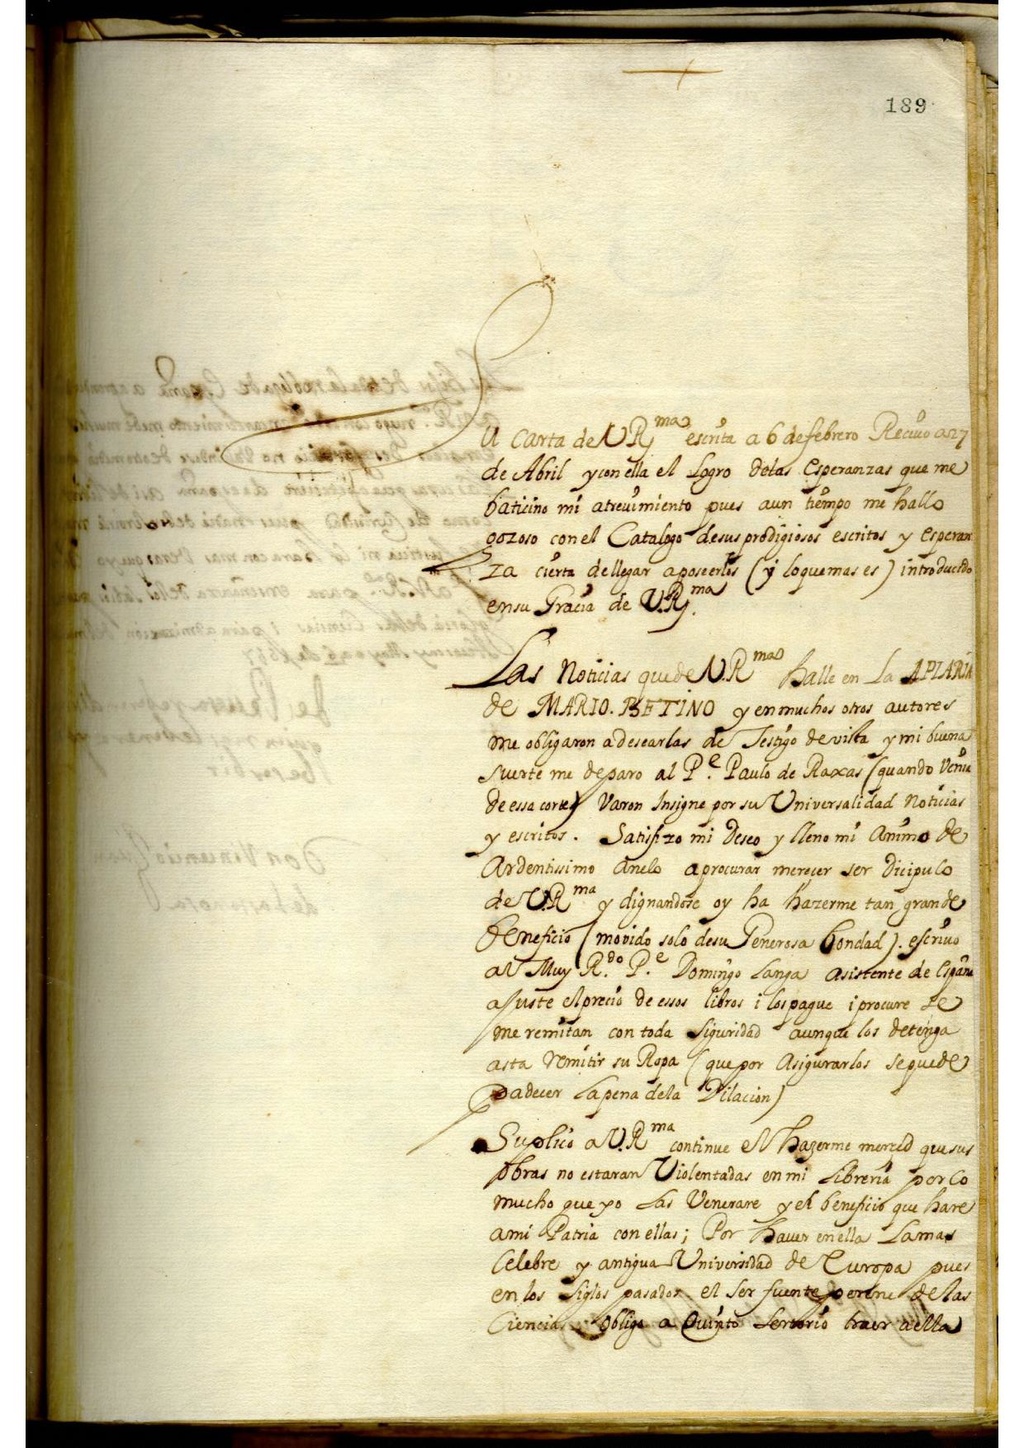 189
U Carta de V.Rma escrita a 6 de febrero Recivo a 27
de Abril y con ella el Logro delas Esperanzas que me
baticino mi atrevimiento pues aun tiempo me hallo
gozoso con el Catalogo desus prodigiosos escritos y esperan
za cierta dellegar aposeerlos (y loquemas es) introducido
ensu Gracia de V.Rma.
Las Noticias que de V.Rma halle en La APIARIA
de MARIO. BETINO y en muchos otros autores
me obligaron adesearlas de Testigo de vista y mi buena
suerte me deparo al Pe. Paulo de Raxas (quando Venia
de essa corte) Varon Insigne por su Universalidad Noticias
y escritos. Satisfizo mi Deseo y lleno mi Animo de
Ardentissimo Anelo aprocurar merecer ser Dicipulo
de V.Rma y dignandose oy ha hazerme tan grande
beneficio (movido solo desu Generosa bondad). escrivo
al Muy R.do P.e Domingo Langa Asistente de España
ajuste el precio de essos libros i los pague i procure se
me remitan con toda Siguridad aunque los detenga
asta remitir su Ropa (que por Asigurarlos se puede
padecer La pena dela Dilacion)
Suplico a V.Rma continue el hazerme merced que sus
obras no estaran Violentadas en mi Libreria por lo
mucho que yo Las Venerare y el beneficio que hare
ami Patria con ellas; Por haver en ella La mas
Celebre y antigua Universidad de Europa pues
en los Siglos pasados el ser fuente perene de las
Ciencias Obligo a Quinto Sertorio traer a ella